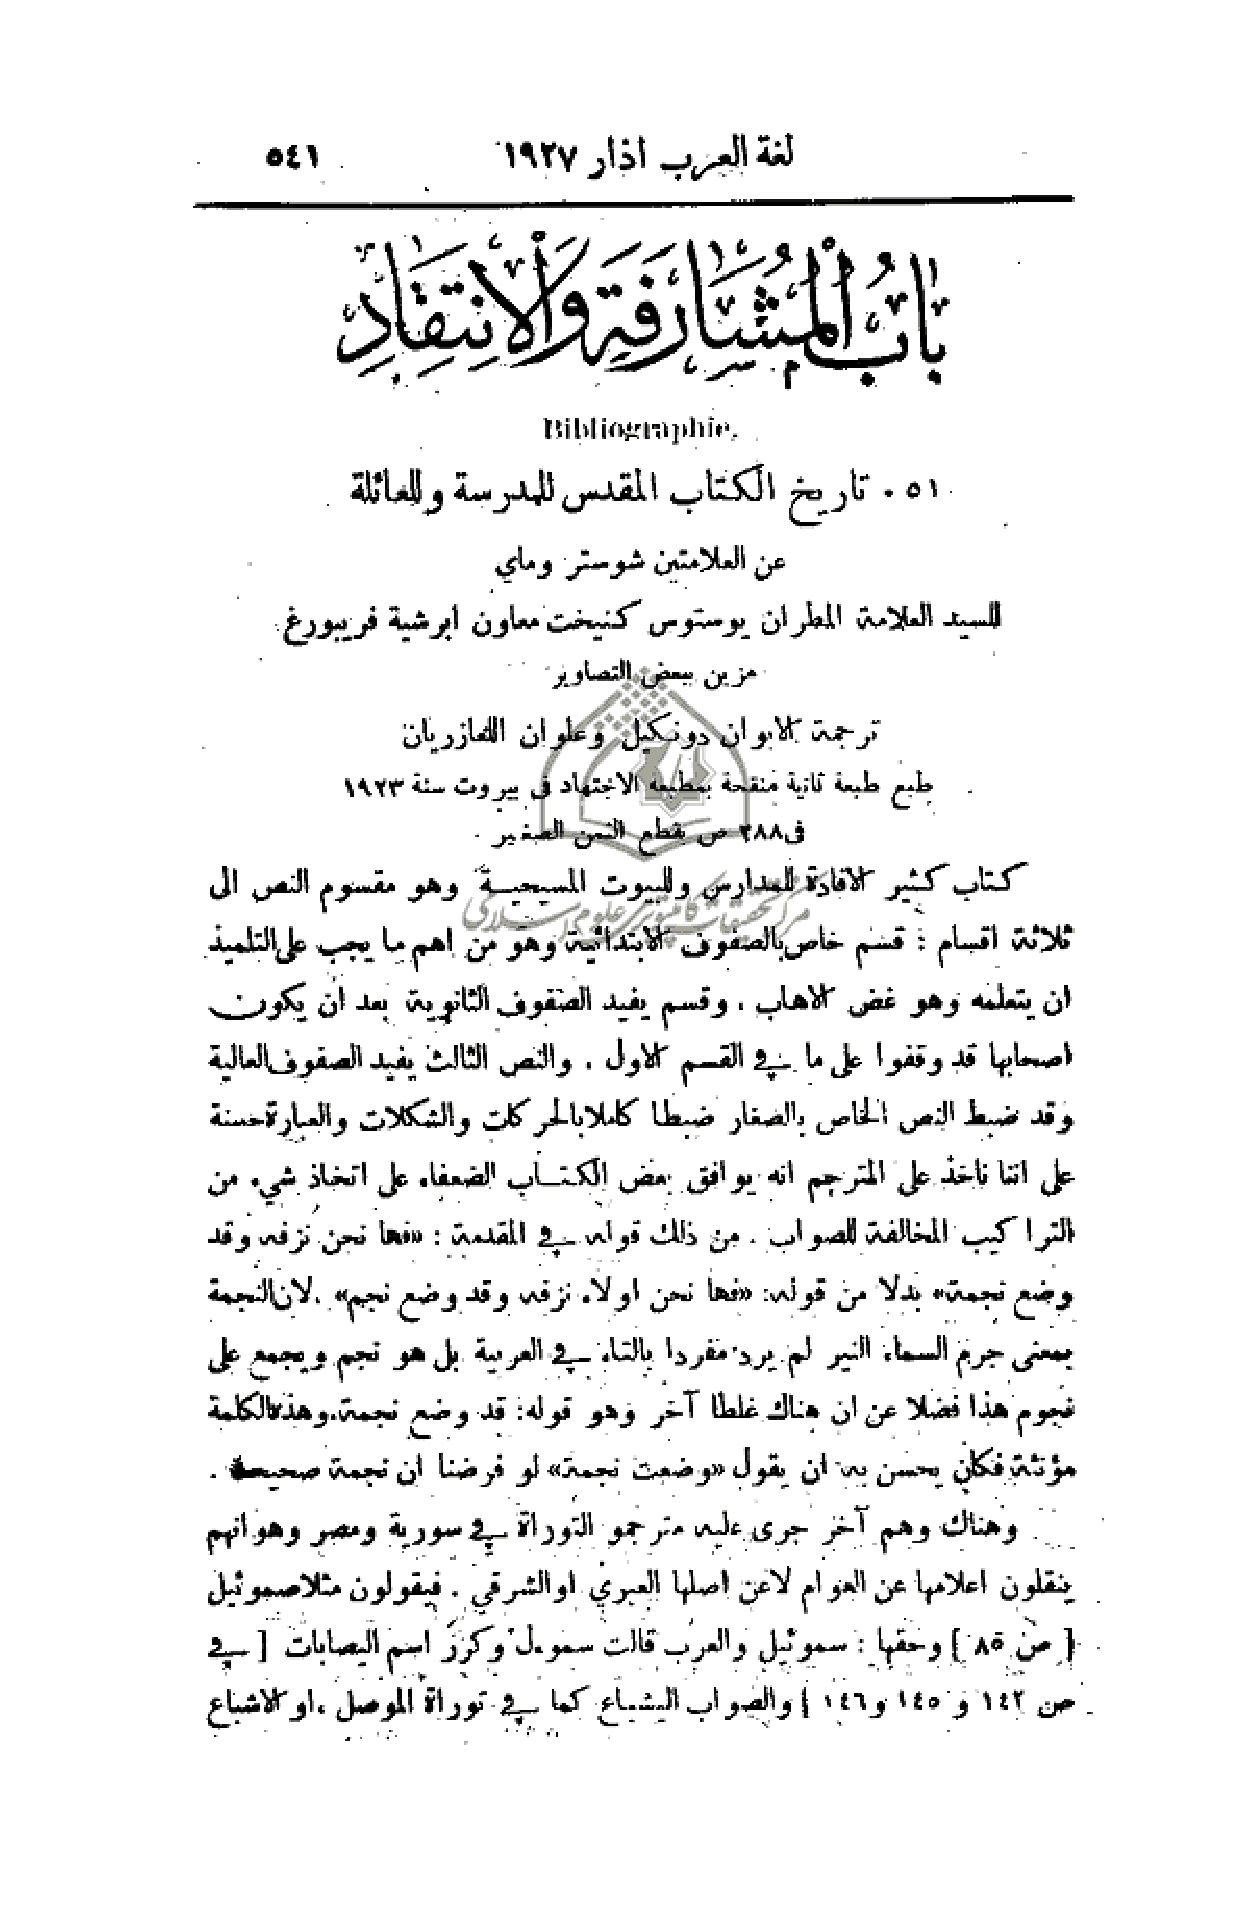 لغة العرب اذار ١٩٢٧ ٥٤١
بَابُ الْمُشَارَفَةِ وَالْاِنْتِقَادِ
Bibliographie.
٥١ . تاريخ الكتاب المقدس للمدرسة وللعائلة
عن العلامتين شوستر وماي
للسيد العلامة المطران يوستوس كنيخت معاون ابرشية فريبورغ
مزين ببعض التصاوير
ترجمة الابوان دونكيل وعلوان اللعازريان
طبع طبعة ثانية منقحة بمطبعة الاجتهاد في بيروت سنة ١٩٢٣
في ٣٨٨ ص بقطع الثمن الصغير
كتاب كثير الافادة للمدارس وللبيوت المسيحية وهو مقسوم النص الى
مركز تحقيقات كامپيوترى علوم اسلامى
ثلاثة اقسام : قسم خاص بالصفوف الابتدائية وهو من اهم ما يجب على التلميذ
ان يتعلمه وهو غض الاهاب . وقسم يفيد الصفوف الثانوية بعد ان يكون
اصحابها قد وقفوا على ما في القسم الاول . والنص الثالث يفيد الصفوف العالية
وقد ضبط النص الخاص بالصغار ضبطا كاملا بالحركات والشكلات والعبارة حسنة
على اننا ناخذ على المترجم انه يوافق بعض الكتاب الضعفاء على اتخاذ شيء من
التراكيب المخالفة للصواب . من ذلك قوله في المقدمة : «فها نحن نزفه وقد
وضع نجمة» بدلا من قوله: «فها نحن اولاء نزفه وقد وضع نجم» . لان النجمة
بمعنى جرم السماء النير لم يرد مفردا بالتاء في العربية بل هو نجم ويجمع على
نجوم هذا فضلا عن ان هناك غلطا آخر وهو قوله: قد وضع نجمة. وهذه الكلمة
مؤنثة فكان يحسن به ان يقول «وضعت نجمة» لو فرضنا ان نجمة صحيحة .
وهناك وهم آخر جرى عليه مترجمو التوراة في سورية ومصر وهو انهم
ينقلون اعلامها عن العوام لا عن اصلها العبري او الشرقي . فيقولون مثلا صموئيل
[ ص ٨٥ ] وحقها : سموئيل والعرب قالت سموءل وكرر اسم اليصابات [ في
ص ١٤٢ و ١٤٥ و ١٤٦ ] والصواب اليشباع كما في توراة الموصل ، او الاشباع